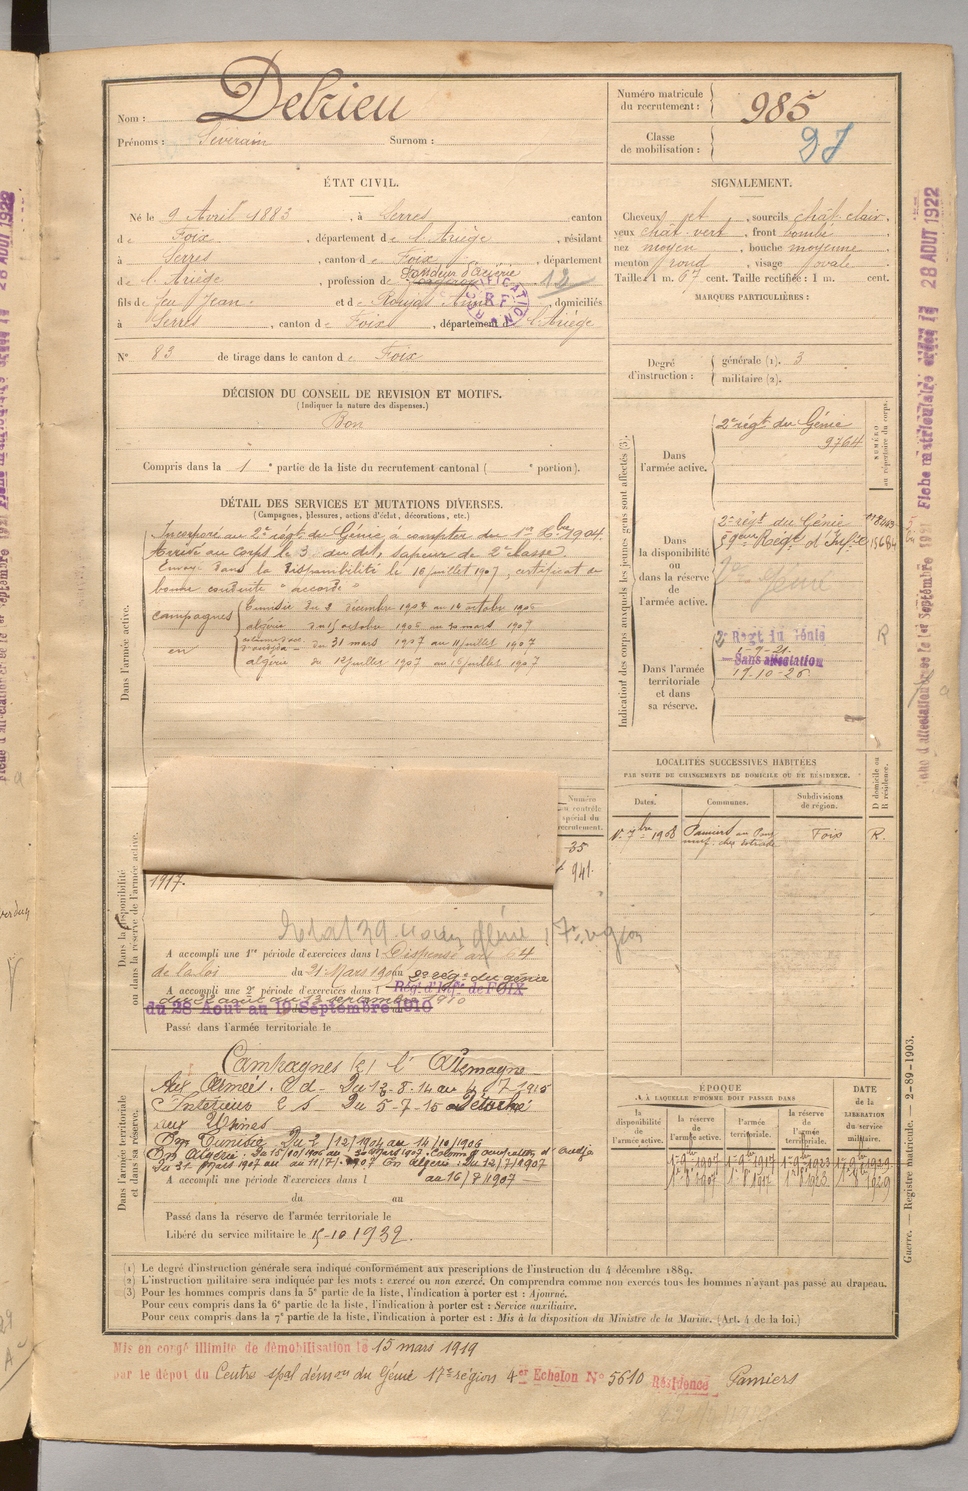 Nom : Delrieu
Prénoms : Séverin Surnom :
Numéro matricule du recrutement : 985
Classe de mobilisation :
ÉTAT CIVIL.
Né le 9 Avril 1883, à Serres canton
de Foix, département de l'Ariège, résidant
à Serres, canton de Foix, département
de l'Ariège, profession de
fils de feu Jean et de Rouja Anne domiciliés
à Serres, canton de Foix, département de l'Ariège
N° 83 de tirage dans le canton de Foix
SIGNALEMENT.
Cheveux , sourcils chât clair
yeux chât. vert, front bombé
nez moyen, bouche moyenne
menton rond, visage ovale
Taille : 1 m. 67 cent. Taille rectifiée : 1 m. cent.
MARQUES PARTICULIÈRES :
Degré d'instruction : générale (1). 3
militaire (2).
DÉCISION DU CONSEIL DE REVISION ET MOTIFS.
(Indiquer la nature des dispenses.)
Bon
Compris dans la 1e partie de la liste du recrutement cantonal ( e portion).
DÉTAIL DES SERVICES ET MUTATIONS DIVERSES.
(Campagnes, blessures, actions d'éclat, décorations, etc.)
Dans l'armée active.
Incorporé au 2e régt du Génie à compter du 1er Xbre 1904.
Arrivé au corps le 3 du dit, sapeur de 2e classe
Envoyé dans la disponibilité le 16 juillet 1907, certificat de
bonne conduite "accordé"
campagnes en
Tunisie du 2 décembre 1904 au 14 octobre 1906
algérie du 15 octobre 1906 au 30 mars 1907
du 31 mars 1907 au 11 juillet 1907
algérie du 12 juillet 1907 au 16 juillet 1907
Indication des corps auxquels les jeunes gens sont affectés (3).
NUMÉRO au répertoire du corps.
Dans l'armée active.
2e régt du Génie
9764
Dans la disponibilité ou dans la réserve de l'armée active.
2e régt du Génie
59eme Regt d'Infie 15684
Génie
Dans l'armée territoriale et dans sa réserve.
2e Régt du Génie
1-9-21
Sans affectation
15-10-26
R
LOCALITÉS SUCCESSIVES HABITÉES
PAR SUITE DE CHANGEMENTS DE DOMICILE OU DE RÉSIDENCE.
D domicile ou R résidence.
Dates. Communes. Subdivisions de région.
1er 7bre 1908 Pamiers au Pont neuf chez Foix R.
Numéro au contrôle spécial du recrutement.
35
941
Dans la disponibilité ou dans la réserve de l'armée active.
1917.
A accompli une 1re période d'exercices dans l Dispensé art 64
de la loi du 21 Mars 1905
A accompli une 2e période d'exercices dans l Régt d'Inf. de FOIX 2e régt du génie
du 28 Aout au 19 Septembre 1910
Passé dans l'armée territoriale le
Dans l'armée territoriale et dans sa réserve.
Campagnes (s) c/ l'Allemagne
Aux Armées. C d - Du 13-8-14 au 4-7-1915
Intérieur C S - Du 5-7-15 Détaché
aux Usines
En Tunisie Du 2/12/1904 au 14/10/1906
En Algérie : du 15/10/1906 au 30 Mars 1907. Colonne d'occupation d'Oudjda
Du 31 Mars 1907 au 11/7/1907 En Algérie : Du 12/7/1907
au 16/7/1907
A accompli une période d'exercices dans l
du au
Passé dans la réserve de l'armée territoriale le
Libéré du service militaire le 15-10 1932.
ÉPOQUE
À LAQUELLE L'HOMME DOIT PASSER DANS
la disponibilité de l'armée active. la réserve de l'armée active. l'armée territoriale. la réserve de l'armée territoriale.
DATE de la LIBÉRATION du service militaire.
(1) Le degré d'instruction générale sera indiqué conformément aux prescriptions de l'instruction du 4 décembre 1889.
(2) L'instruction militaire sera indiquée par les mots : exercé ou non exercé. On comprendra comme non exercés tous les hommes n'ayant pas passé au drapeau.
(3) Pour les hommes compris dans la 5e partie de la liste, l'indication à porter est : Ajourné.
Pour ceux compris dans la 6e partie de la liste, l'indication à porter est : Service auxiliaire.
Pour ceux compris dans la 7e partie de la liste, l'indication à porter est : Mis à la disposition du Ministre de la Marine. (Art. 4 de la loi.)
Guerre. — Registre matricule. — 2-89-1903.
Mis en congé illimité de démobilisation le 15 mars 1919
par le dépot du Centre spal démon du Génie 17e région 4er Echelon No 5610 Résidence Pamiers
28 AOUT 1922